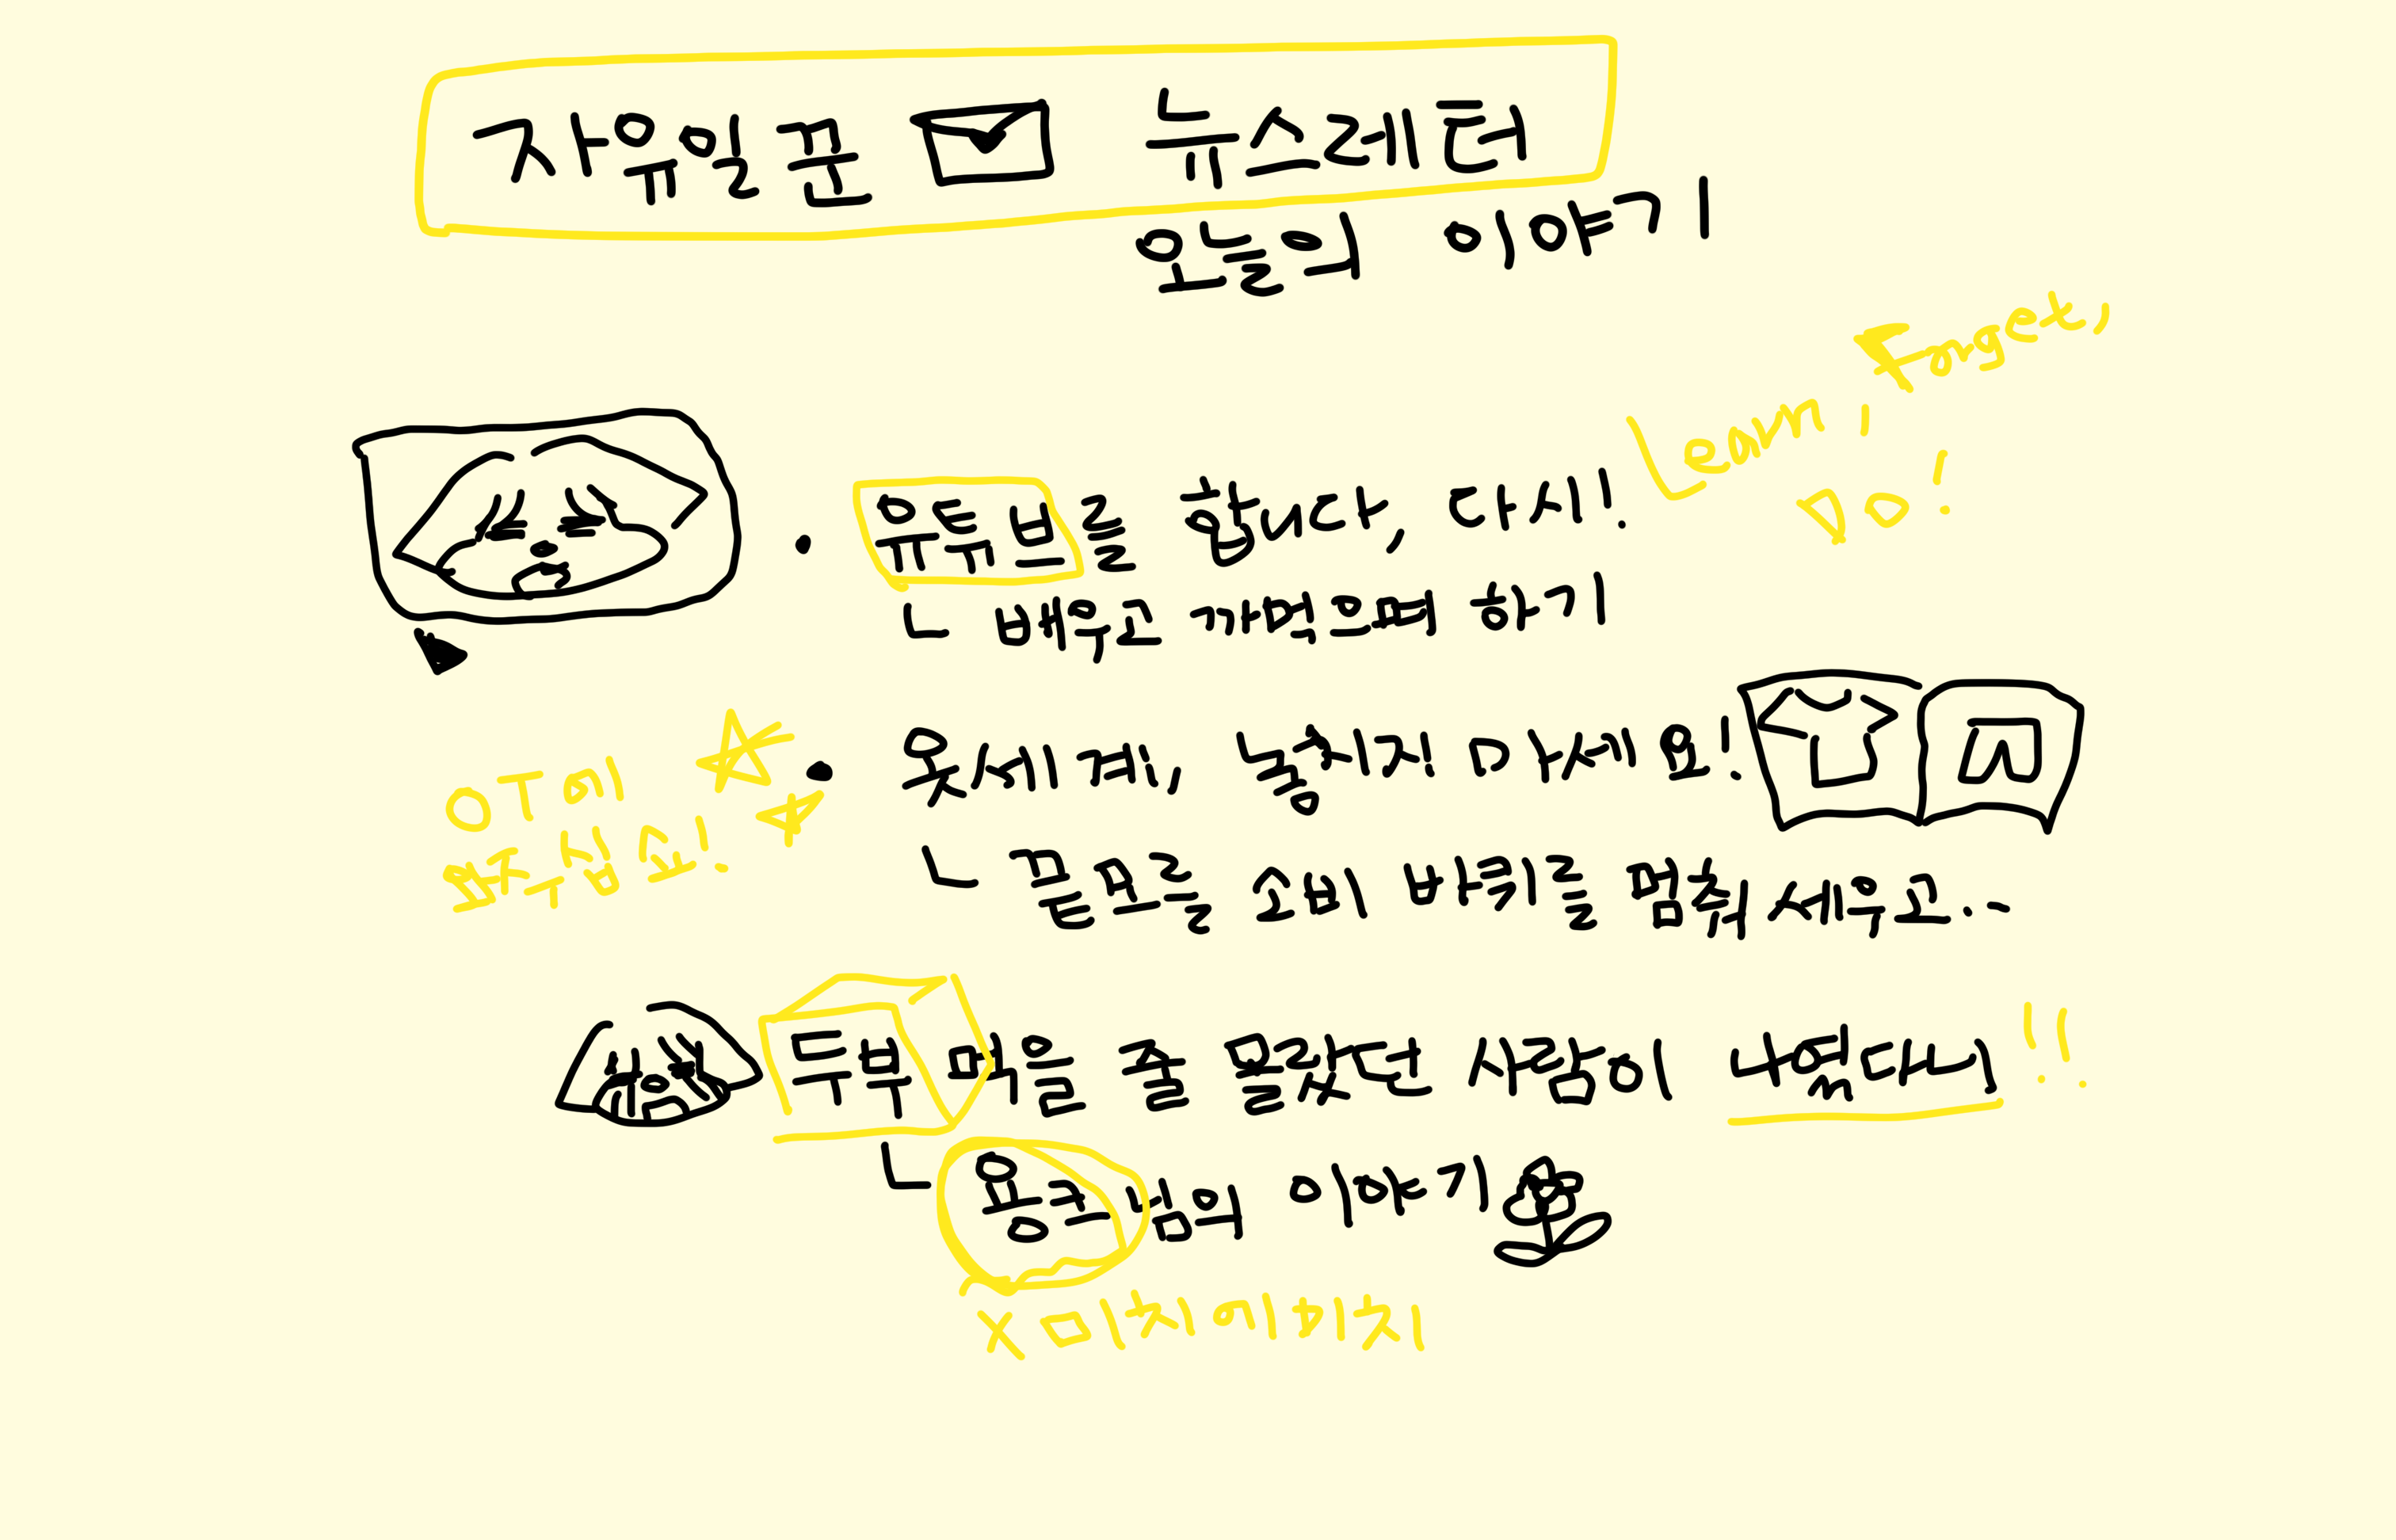 자유일꾼 뉴스레터
오늘의 이야기
Learn, Forget,
DO!
· 유튜브를 합니다, 다시!
ㄴ 배우고 까먹으며 하기
OT에
와주십쇼!
· 옷세계, 놓치지 마세요!
ㄴ 끝모를 소비 바퀴를 멈춰 세우고..
두부 먹을 줄 몰랐던 사람이 나였다니!!
ㄴ 용근님의 이야기
x 미치에미치